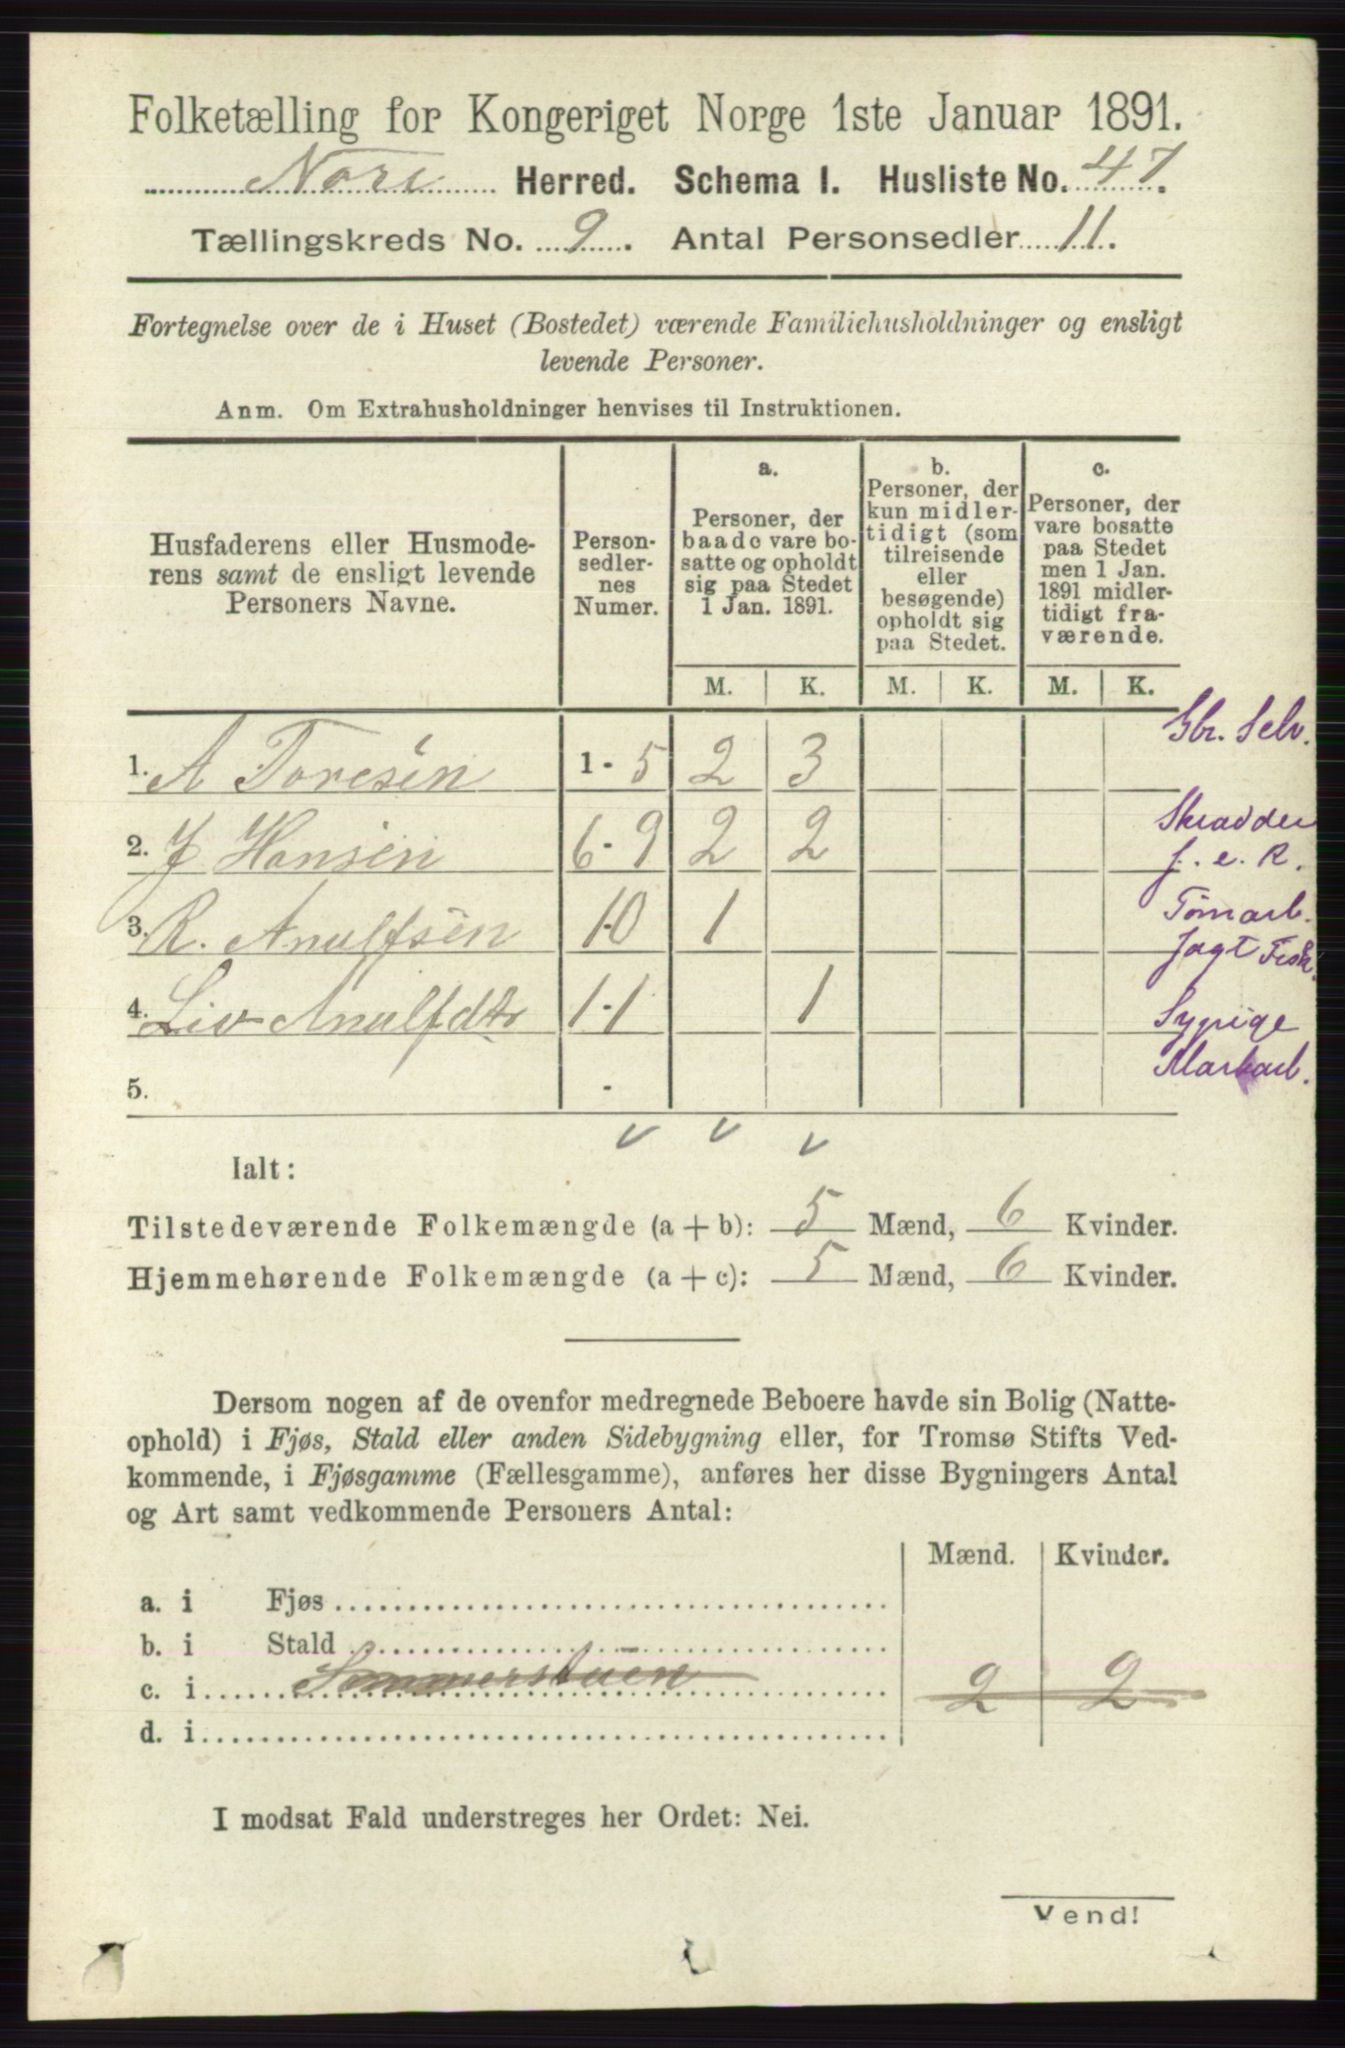 Folketælling for Kongeriget Norge 1ste Januar 1891.
Nore Herred. Schema I. Husliste No. 47.
Tællingskreds No. 9. Antal Personsedler 11.
Fortegnelse over de i Huset (Bostedet) værende Familiehusholdninger og ensligt
levende Personer.
Anm. Om Extrahusholdninger henvises til Instruktionen.
Husfaderens eller Husmode-
rens samt de ensligt levende
Personers Navne.
Person-
sedler-
nes
Numer.
a.
Personer, der
baade vare bo-
satte og opholdt
sig paa Stedet
1 Jan. 1891.
b.
Personer, der
kun midler-
tidigt (som
tilreisende
eller
besøgende)
opholdt sig
paa Stedet.
c.
Personer, der
vare bosatte
paa Stedet
men 1 Jan.
1891 midler-
tidigt fra-
værende.
M. K. M. K. M. K.
Gbr. Selv.
1. A Toresen 1 - 5 2 3
Skrædder
2. J Hansen 6 - 9 2 2
f. e. R.
3. R. Anulfsen 10 1
Tømarb.
Jagt Fisk.
4. Liv Anulfdtr 1-1 1
Sypige
Markarb.
5. -
Ialt:
Tilstedeværende Folkemængde (a + b): 5 Mænd, 6 Kvinder.
Hjemmehørende Folkemængde (a + c): 5 Mænd, 6 Kvinder.
Dersom nogen af de ovenfor medregnede Beboere havde sin Bolig (Natte-
ophold) i Fjøs, Stald eller anden Sidebygning eller, for Tromsø Stifts Ved-
kommende, i Fjøsgamme (Fællesgamme), anføres her disse Bygningers Antal
og Art samt vedkommende Personers Antal:
Mænd. Kvinder.
a. i Fjøs
b. i Stald
c. i Sommerstuen 2 2
d. i
I modsat Fald understreges her Ordet: Nei.
Vend!